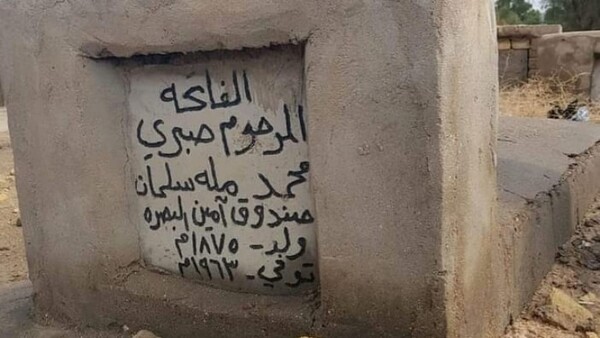 الفاتحه
المرحوم صبري
محمد مله سلمان
صندوق آمين البصره
ولد - ١٨٧٥م
توفي - ١٩٦٣م